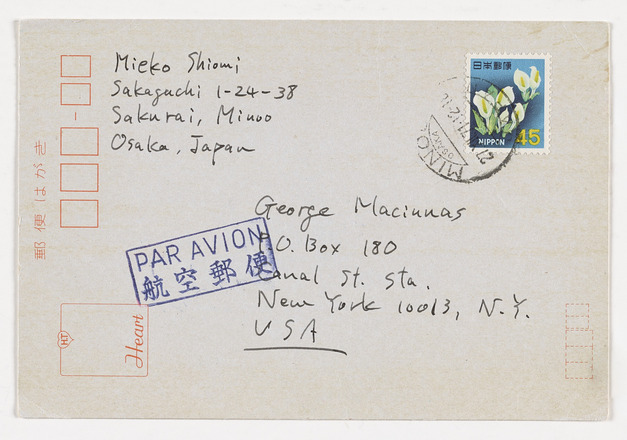 Mieko Shiomi
Sakaguchi 1-24-38
Sakurai, Minoo
Osaka, Japan
日本郵便
NIPPON 45
MINO
OSAKA
郵便はがき
George Maciunas
P.O. Box 180
Canal St. Sta.
New York 10013, N.Y.
USA
PAR AVION
航空郵便
HT
Heart